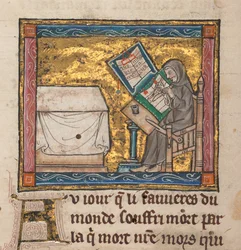 AV iour q̄ li sauueres du
monde souffri mort par
la q̄ mort nr̄e mors qui